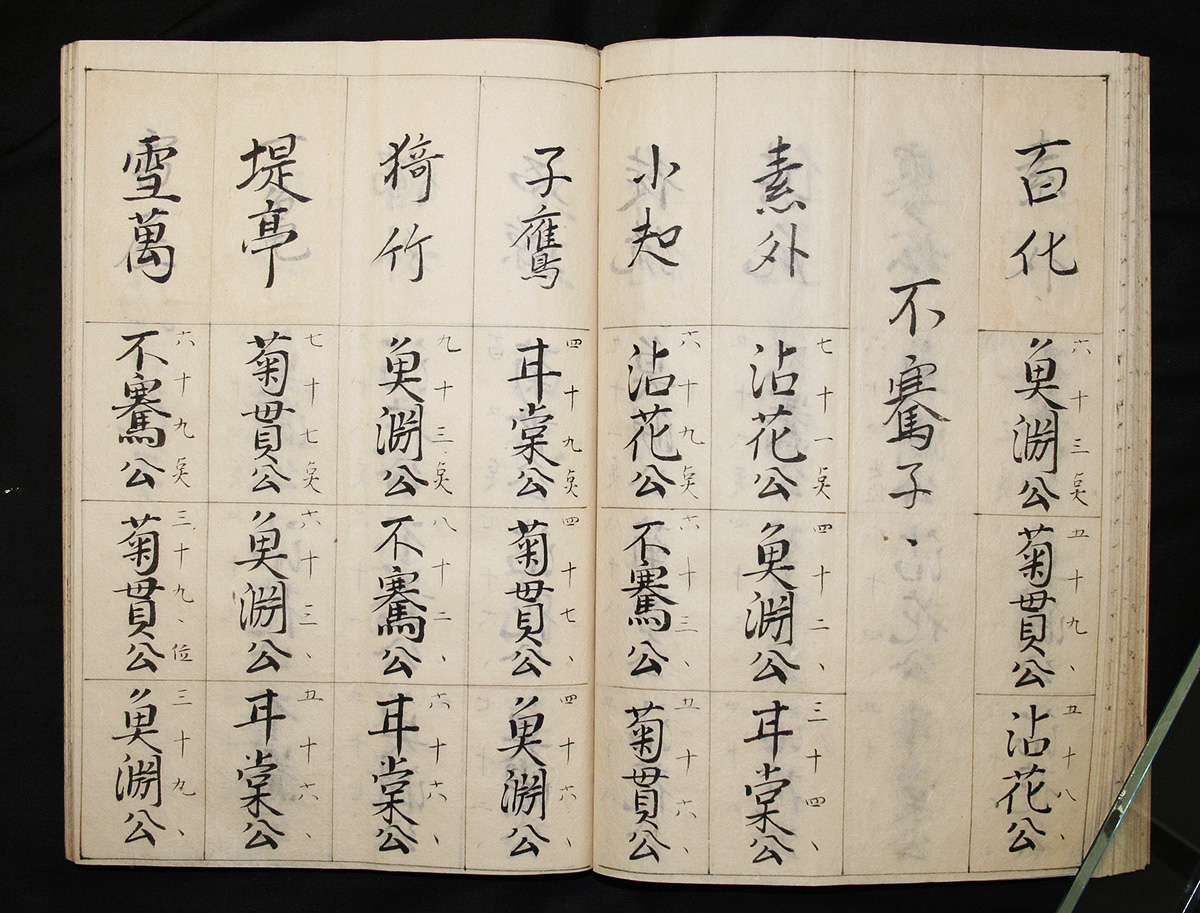 百化
六十三点
魚淵公
五十九、
菊貫公
五十八、
沾花公
不騫子、
素外
七十一点
沾花公
四十二、
魚淵公
三十四、
甘棠公
小起
六十九点
沾花公
六十三、
不騫公
五十六、
菊貫公
子鷹
四十九点
甘棠公
四十七、
菊貫公
四十六、
魚淵公
猗竹
九十三、点
魚淵公
八十二、
不騫公
六十六、
甘棠公
堤亭
七十七点
菊貫公
六十三、
魚淵公
五十六、
甘棠公
雪萬
六十九点
不騫公
三十九、位
菊貫公
三十九、
魚淵公